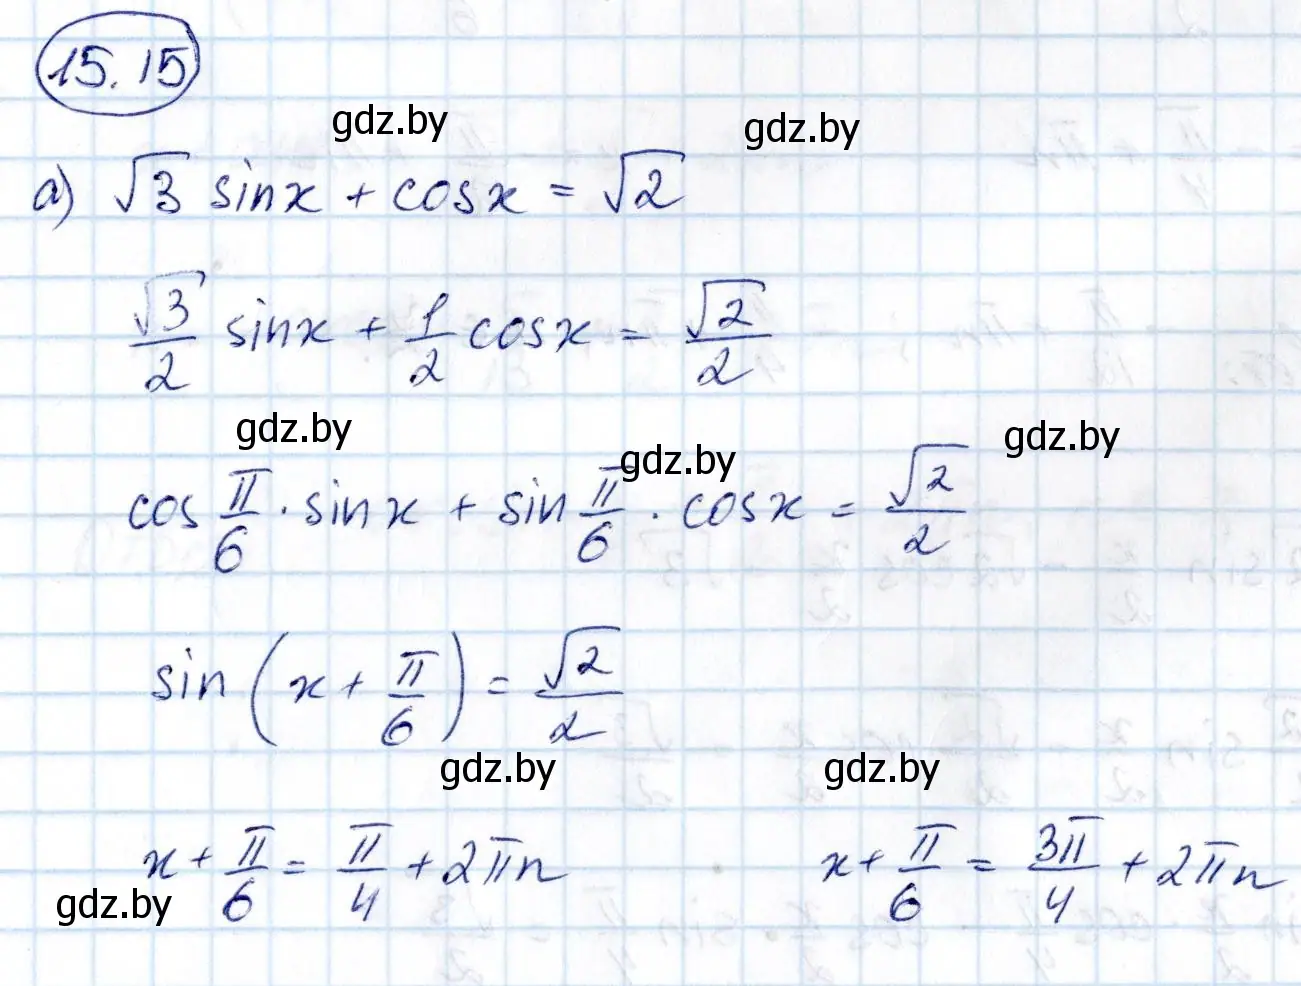 15.15
gdz.by gdz.by
а) √3 sinx + cosx = √2
√3/2 sinx + 1/2 cosx = √2/2
gdz.by gdz.by gdz.by
cos π/6 · sinx + sin π/6 · cosx = √2/2
sin(x + π/6) = √2/2
gdz.by gdz.by
x + π/6 = π/4 + 2πn x + π/6 = 3π/4 + 2πn
gdz.by